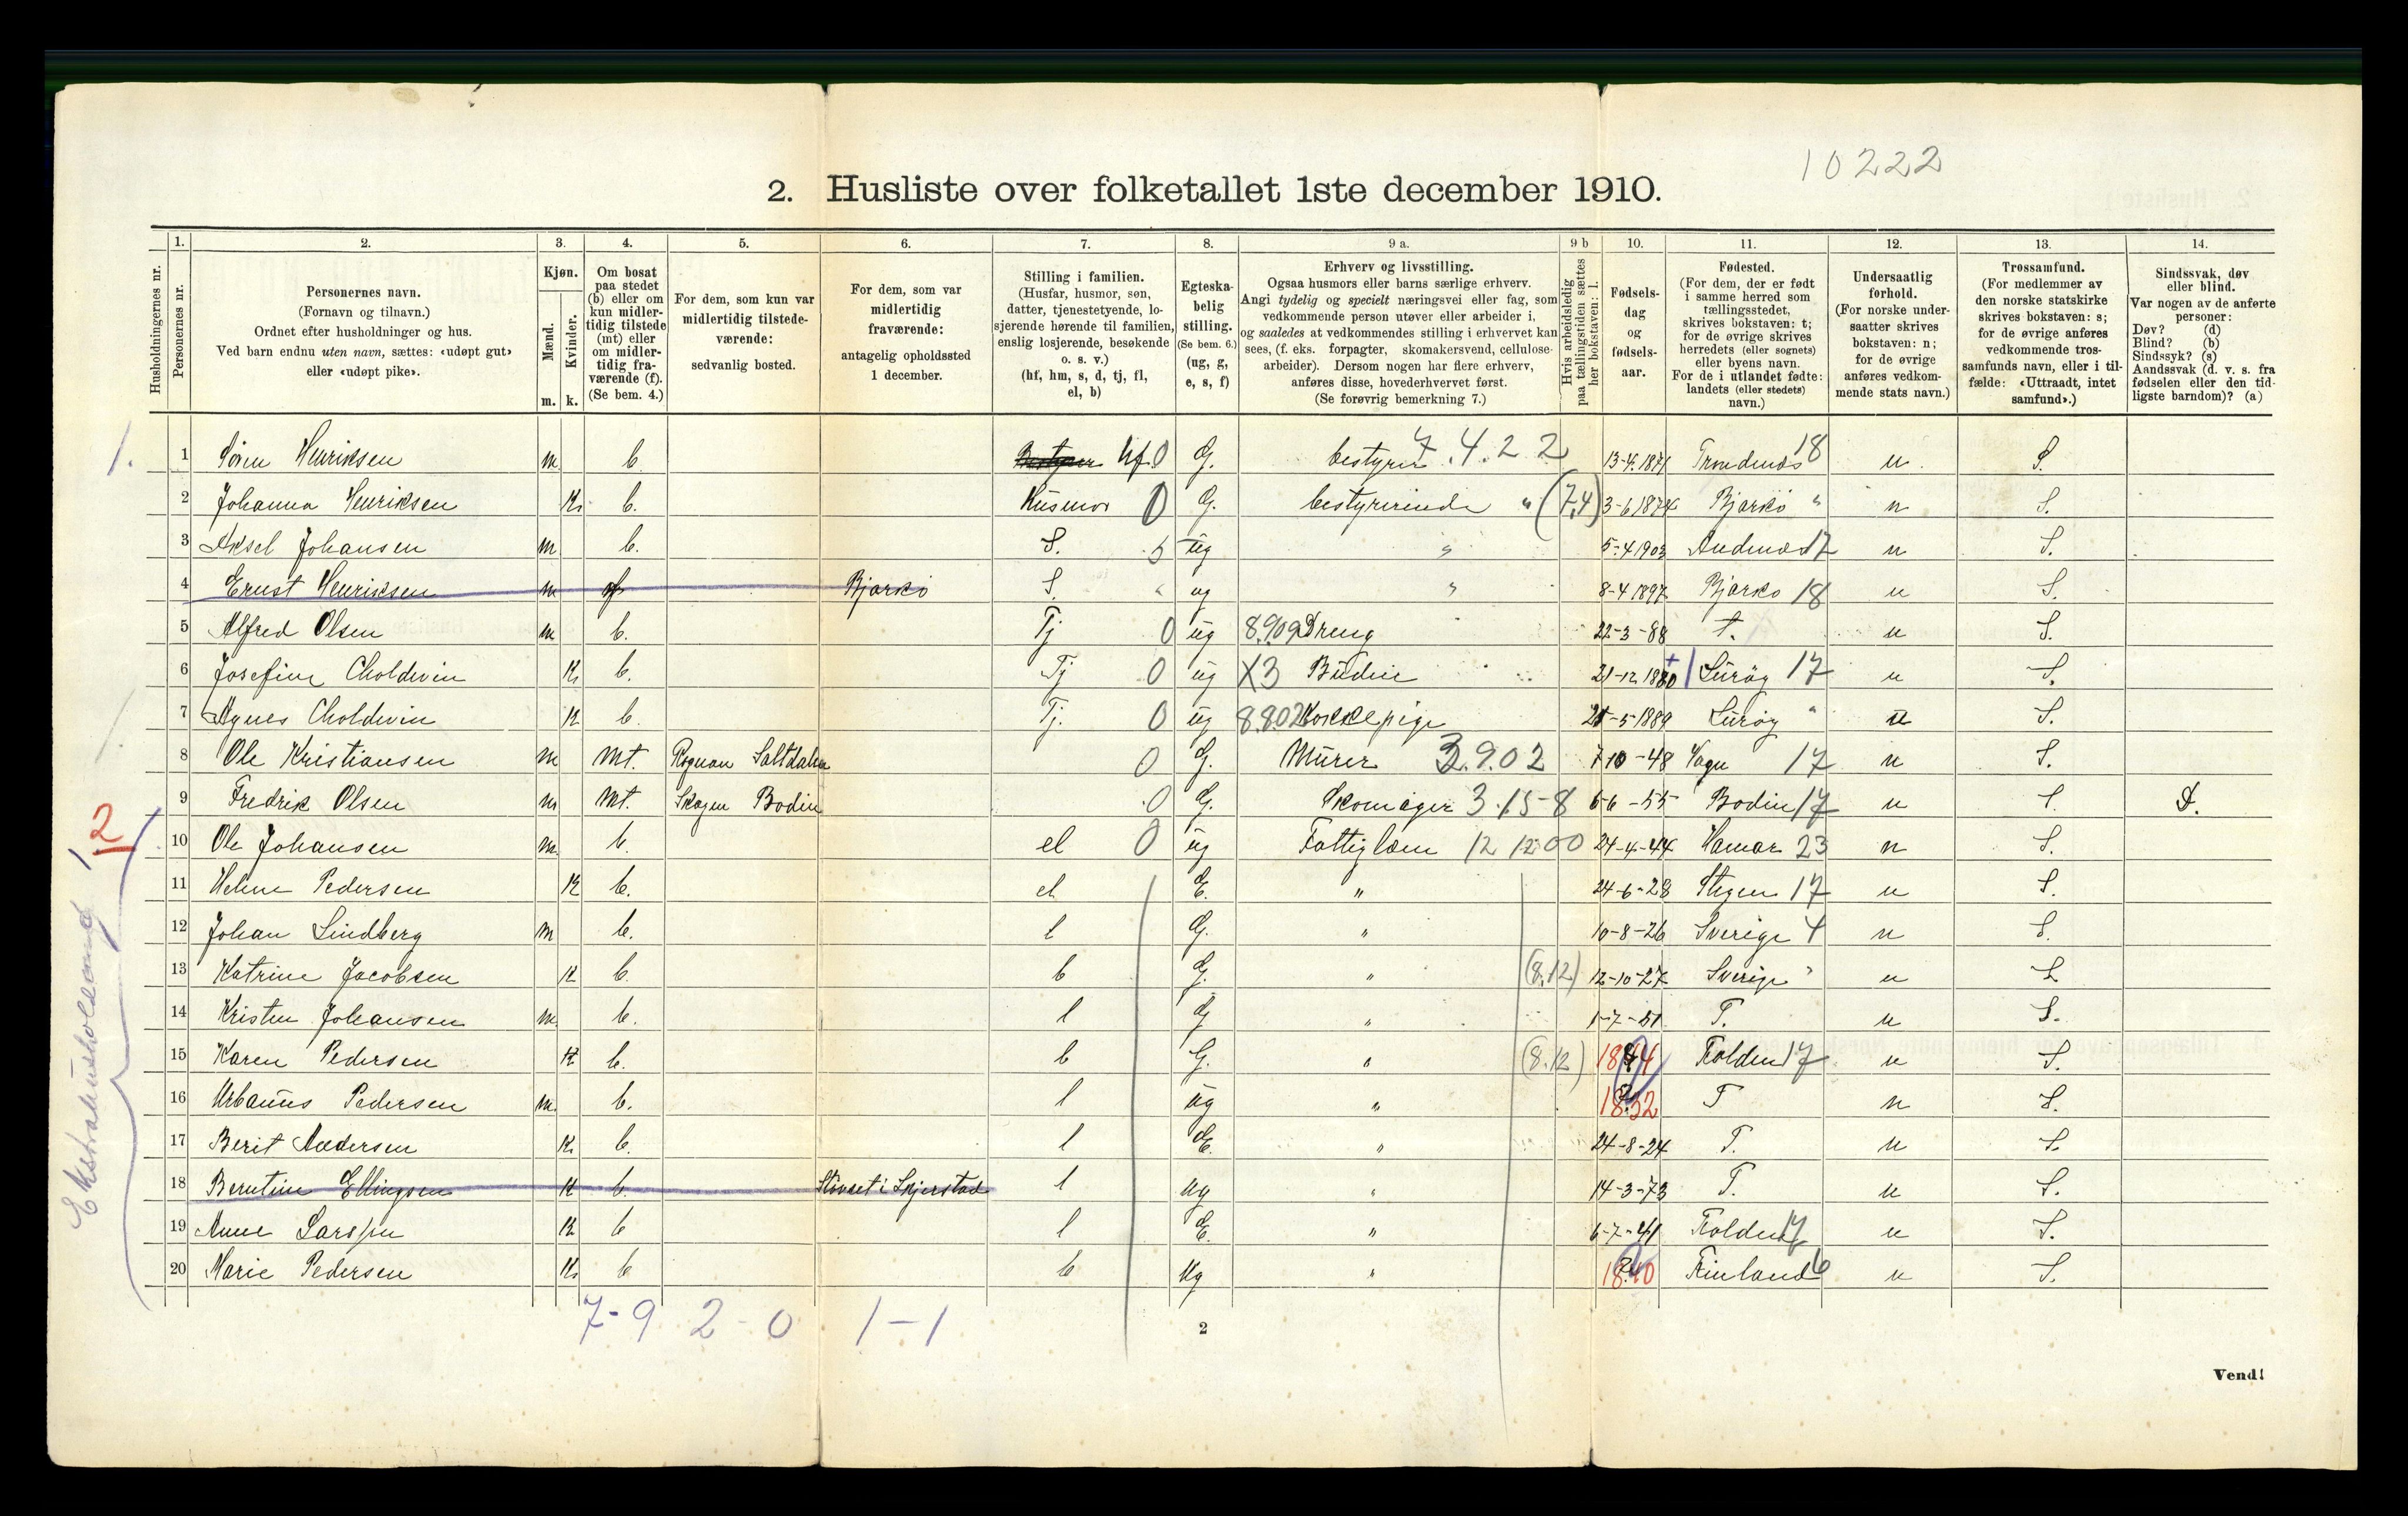 10222
2. Husliste over folketallet 1ste december 1910.
Husholdningernes nr.
1. Personernes nr.
2. Personernes navn.
(Fornavn og tilnavn.)
Ordnet efter husholdninger og hus.
Ved barn endnu uten navn, sættes: «udøpt gut»
eller «udøpt pike».
3. Kjøn.
Mænd. Kvinder.
m. k.
4. Om bosat
paa stedet
(b) eller om
kun midler-
tidig tilstede
(mt) eller
om midler-
tidig fra-
værende (f).
(Se bem. 4.)
5. For dem, som kun var
midlertidig tilstede-
værende:
sedvanlig bosted.
6. For dem, som var
midlertidig
fraværende:
antagelig opholdssted
1 december.
7. Stilling i familien.
(Husfar, husmor, søn,
datter, tjenestetyende, lo-
sjerende hørende til familien,
enslig losjerende, besøkende
o. s. v.)
(hf, hm, s, d, tj, fl,
el, b)
8. Egteska-
belig
stilling.
(Se bem. 6.)
(ug, g,
e, s, f)
9 a. Erhverv og livsstilling.
Ogsaa husmors eller barns særlige erhverv.
Angi tydelig og specielt næringsvei eller fag, som
vedkommende person utøver eller arbeider i,
og saaledes at vedkommendes stilling i erhvervet kan
sees, (f. eks. forpagter, skomakersvend, cellulose-
arbeider). Dersom nogen har flere erhverv,
anføres disse, hovederhvervet først.
(Se forøvrig bemerkning 7.)
9 b Hvis arbeidsledig
paa tællingstiden sættes
her bokstaven: l.
10. Fødsels-
dag
og
fødsels-
aar.
11. Fødested.
(For dem, der er født
i samme herred som
tællingsstedet,
skrives bokstaven: t;
for de øvrige skrives
herredets (eller sognets)
eller byens navn.
For de i utlandet fødte:
landets (eller stedets)
navn.)
12. Undersaatlig
forhold.
(For norske under-
saatter skrives
bokstaven: n;
for de øvrige
anføres vedkom-
mende stats navn.)
13. Trossamfund.
(For medlemmer av
den norske statskirke
skrives bokstaven: s;
for de øvrige anføres
vedkommende tros-
samfunds navn, eller i til-
fælde: «Uttraadt, intet
samfund».)
14. Sindssvak, døv
eller blind.
Var nogen av de anførte
personer:
Døv? (d)
Blind? (b)
Sindssyk? (s)
Aandssvak (d. v. s. fra
fødselen eller den tid-
ligste barndom)? (a)
1. 1 Søren Henriksen m b. Bestyrer hf. 0 G. bestyrer 7.4.22 13-4.1871 Trondenæs 18 n S.
2 Johanna Henriksen K b. Husmor 0 G. bestyrerinde " (7,4) 3-6 1874 Bjarkö " n S.
3 Aksel Johansen m b. S. 5 ug " 5-4 1903 Andenæs 17 n S.
4 Ernst Henriksen m f Bjarkö S. " ug " 8-4 1897 Bjarkö 18 n S.
5 Alfred Olsen m b. Tj 0 ug 8.909 Dreng 22-3-88 t. n S.
6 Josefine Choldevin K b. Tj 0 ug X3 Budeie 21-12 1880 Luröy 17 n S.
7 Agnes Choldevin K b. Tj. 0 ug 8.802 Kokkepige 21-5-1889 Luröy " n S.
8 Ole Kristiansen m mt. Rognan Saltdalen 0 G. Murer 3.9.02 7-10-48 Vagn 17 n S.
9 Fredrik Olsen m mt. Skagen Bodin 0 G. Skomager 3.15-8 6-6-55 Bodin 17 n S. D.
10 Ole Johansen m. b. el 0 ug Fattiglem 12 12.00 24-4-44 Hamar 23 n S.
11 Helene Pedersen K b. el E. " 24-6-28 Stegen 17 n S.
12 Johan Lindberg m b. l G. " 10-8-26 Sverige 4 n S.
13 Katrine Jacobsen K b. b G. " (8.12) 12-10-27 Sverige " n S
14 Kristen Johansen m. b. l G " 1-7-51 T. n S.
15 Karen Pedersen K b. b G. " (8.12) 1844 Folden 17 n S.
16 Urbanus Pedersen m. b. l ug " 1832 T n S.
17 Berit Andersen K b. l E. " 24-8-24 T. n S.
18 Berntine Ellingsen K b. Skjerstad l ug " 14-3-73 T. n S.
19 Anne Larssen K b l E. " 6-7-41 Folden 17 n S.
20 Marie Pedersen K b b ug " 1840 Finland 6 n S.
Ekstrahusholdning 1
12
7-9 2-0 1-1
2
Vend!